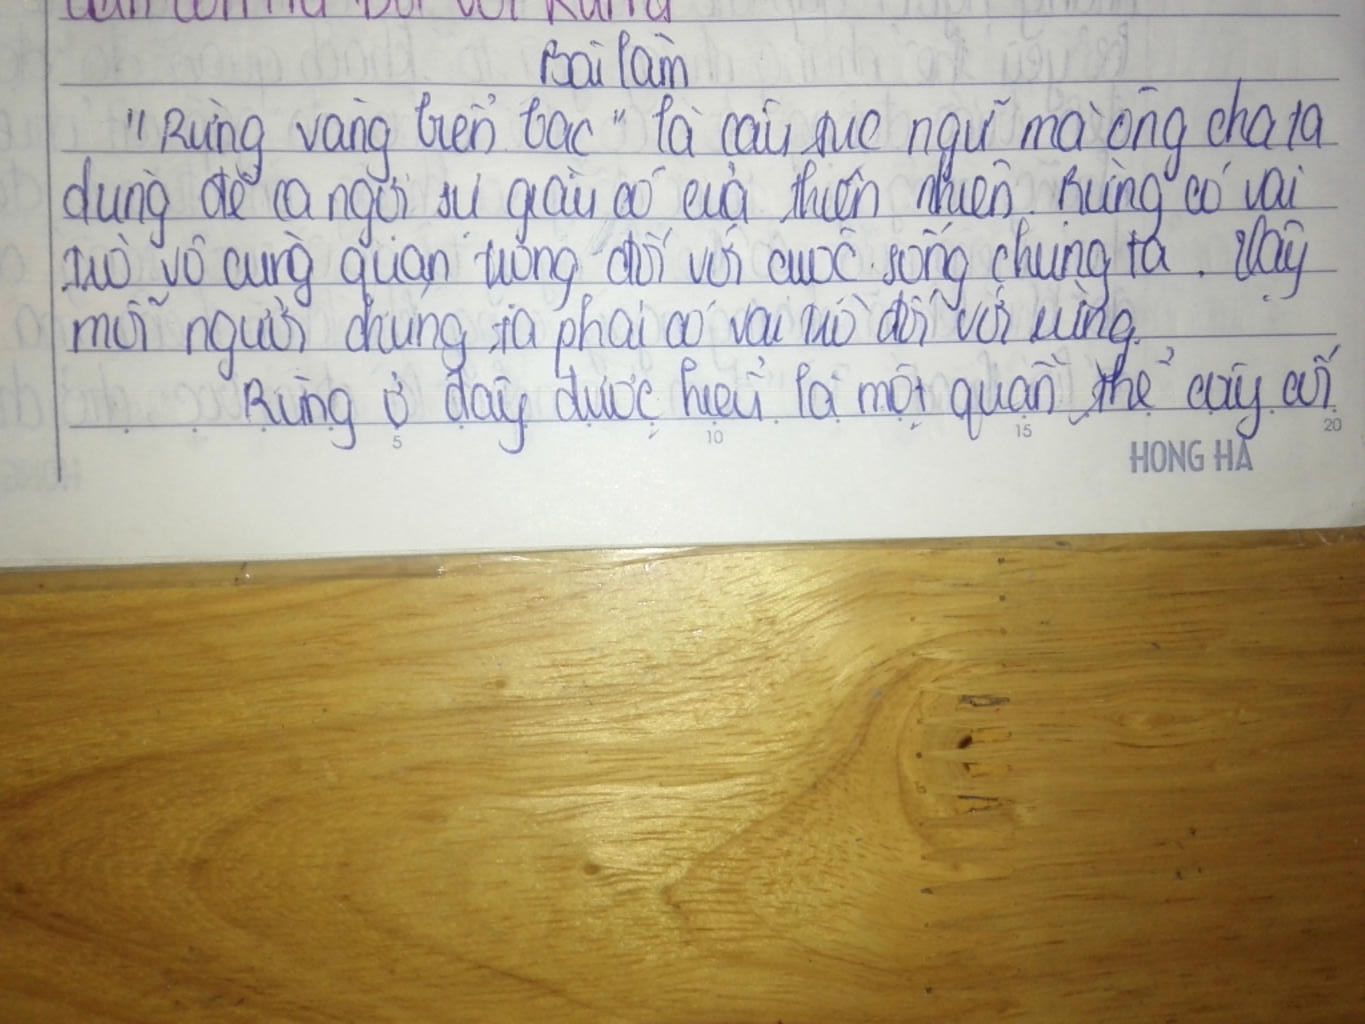 Bài làm
"Rừng vàng biển bạc" là câu tục ngữ mà ông cha ta
dùng để ca ngợi sự giàu có của thiên nhiên. Rừng có vai
trò vô cùng quan trọng đối với cuộc sống chúng ta. Vậy
mỗi người chúng ta phải có vai trò đối với rừng.
Rừng ở đây được hiểu là một quần thể cây cối
5 10 15 20
HONG HA